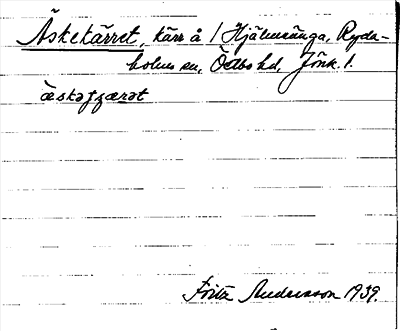 Äskekärret, kärr å / Hjälmsänga, Ryda-
holms sn, Östbo hd, Jönk. l.
æskəfzærət
Fritz Andersson 1939.